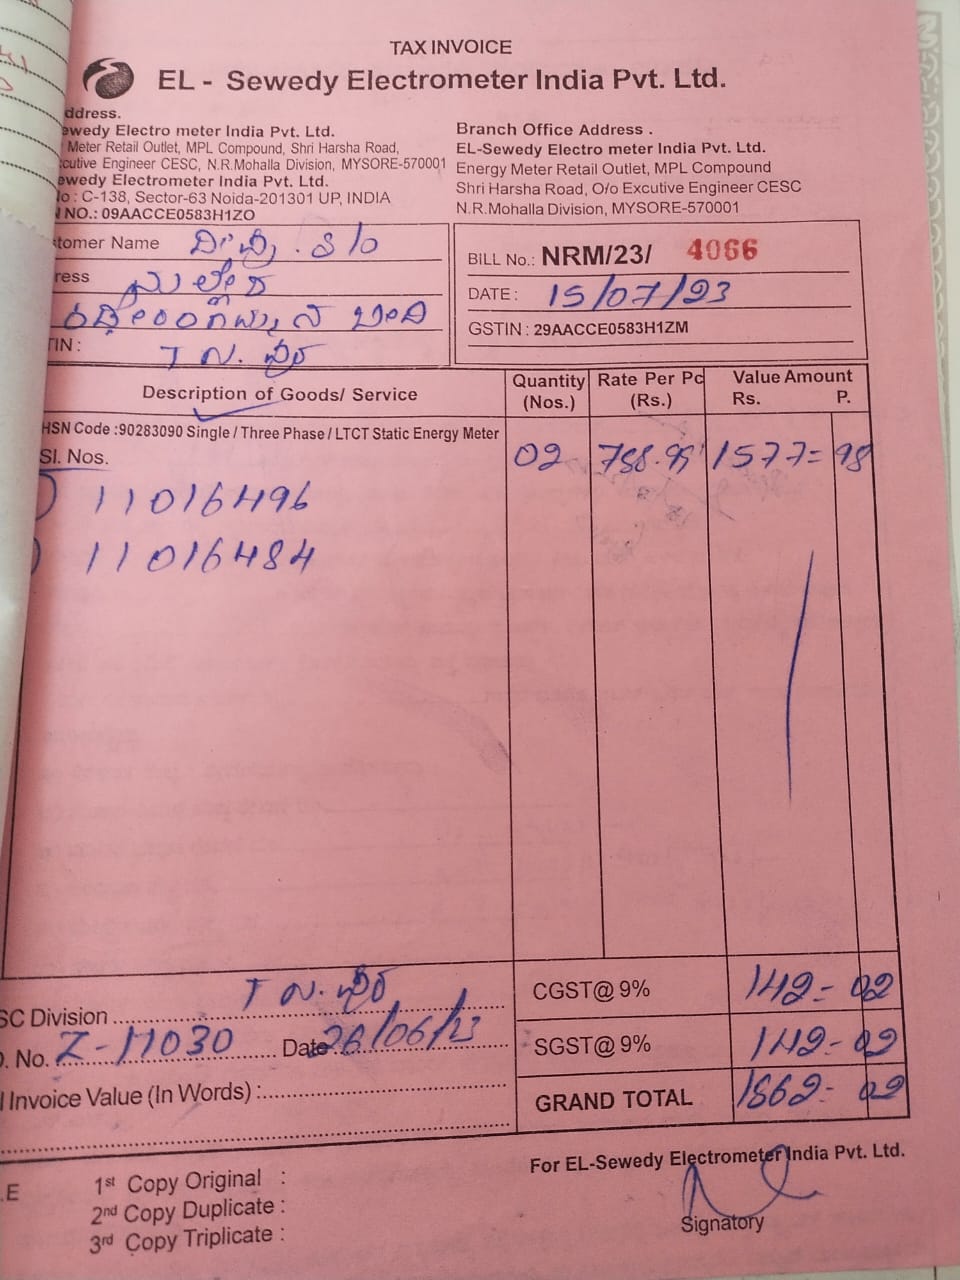 TAX INVOICE
EL - Sewedy Electrometer India Pvt. Ltd.
ddress.
ewedy Electro meter India Pvt. Ltd.
Meter Retail Outlet, MPL Compound, Shri Harsha Road,
cutive Engineer CESC, N.R.Mohalla Division, MYSORE-570001
ewedy Electrometer India Pvt. Ltd.
lo : C-138, Sector-63 Noida-201301 UP, INDIA
NO.: 09AACCE0583H1ZO
Branch Office Address .
EL-Sewedy Electro meter India Pvt. Ltd.
Energy Meter Retail Outlet, MPL Compound
Shri Harsha Road, O/o Excutive Engineer CESC
N.R.Mohalla Division, MYSORE-570001
tomer Name S/o
ress
TIN :
BILL No.: NRM/23/ 4066
DATE : 15/07/23
GSTIN : 29AACCE0583H1ZM
Description of Goods/ Service
Quantity (Nos.)
Rate Per Pc (Rs.)
Value Amount
Rs. P.
HSN Code :90283090 Single / Three Phase / LTCT Static Energy Meter
Sl. Nos.
02 788.99 1577= 98
11016496
11016484
CGST@ 9% 142- 02
SGST@ 9% 142- 02
GRAND TOTAL 1862- 02
SC Division
. No. Z-17030 Date 26/06/23
Invoice Value (In Words) :
For EL-Sewedy Electrometer India Pvt. Ltd.
Signatory
.E
1st Copy Original :
2nd Copy Duplicate :
3rd Copy Triplicate :